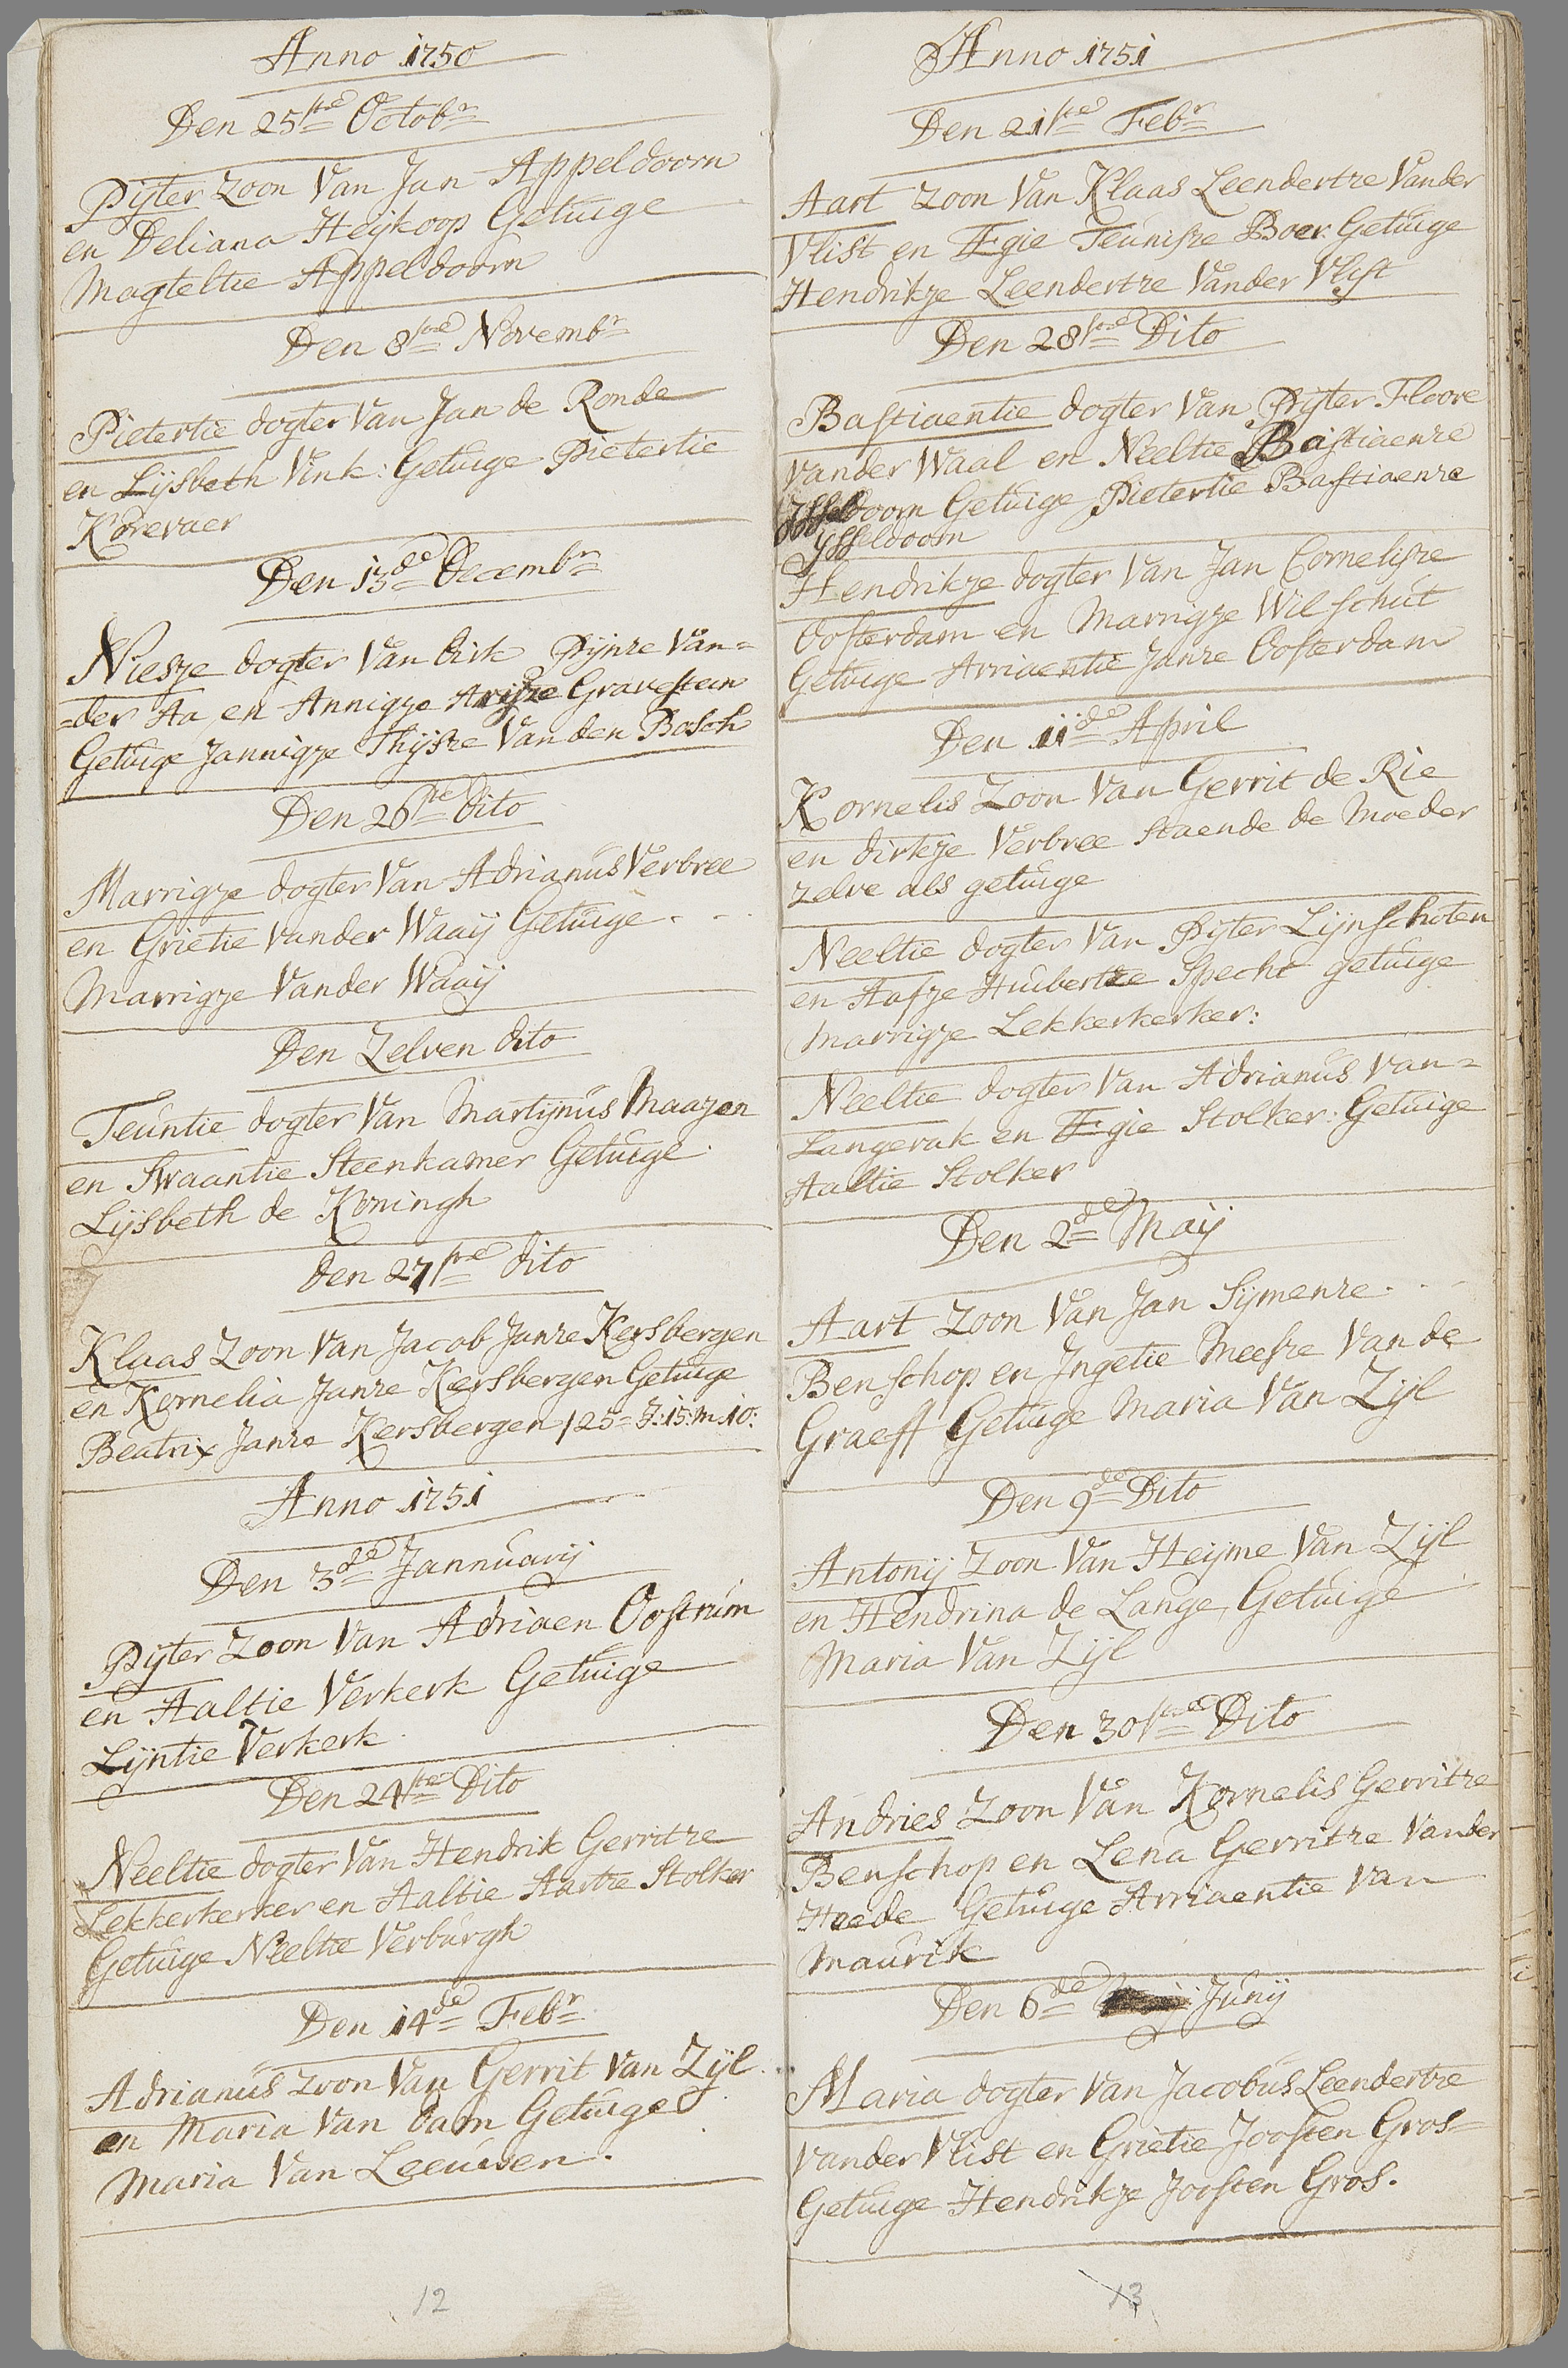 Anno 1750
Den 25ste Octobr
Pijter Zoon Van Jan Appeldoorn
en Deliana Heijkoop Getuige
Magteltie Appeldoorn
Den 8ste Novembr
Pietertie dogter Van Jan de Ronde
en Lijsbeth Vink: Getuige Pietertie
Korevaer
Den 13de Decembr
Niesje dogter Van Dirk Pijnze Van=
=der Aa en Annigje Arijze Gravestein
Getuige Jannigje Thijsze Van den Bosch
Den 26ste dito
Marrigje dogter Van Adrianus Verbree
en Grietie Vander Waaij Getuige
Marrigje Vander Waaij
Den Zelven dito
Teuntie dogter Van Martijnus Maazen
en Swaantie Steenkamer Getuige
Lijsbeth de Koningh
den 27ste dito
Klaas Zoon Van Jacob Janze Kersbergen
en Kornelia Janze Kersbergen Getuige
Beatrix Janze Kersbergen / 25= J:15:M:10:
Anno 1751
Den 3de Jannuarij
Pijter Zoon Van Adriaen Oostrum
en Aaltie Verkerk Getuige
Lijntie Verkerk
Den 24ste Dito
Neeltie dogter Van Hendrik Gerritze
Lekkerkerker en Aaltie Aartze Stolker
Getuige Neeltie Verburgh
Den 14de Febr
Adrianus zoon Van Gerrit Van Zijl
en Maria Van Dam Getuige
Maria Van Leeuwen.
12
Anno 1751
Den 21ste Febr
Aart Zoon Van Klaas Leendertze Vander
Vlist en Egie Teunisze Boer Getuige
Hendrikje Leendertze Vander Vlist
Den 28ste Dito
Bastiaentie dogter Van Pijter Floore
Vander Waal en Neeltie Bastiaenze
IJsseldoorn Getuige Pietertie Bastiaenze
IJsseldoorn
Hendrikje dogter Van Jan Cornelisze
Oosterdam en Marrigje Wilschut
Getuige Arriaentie Janze Oosterdam
Den 11de April
Kornelis Zoon Van Gerrit de Rie
en dirkje Verbree Staende de Moeder
zelve als getuige
Neeltie dogter Van Pijter Lijnschoten
en Aafje Huibertze Specht getuige
Marrigje Lekkerkerker:
Neeltie dogter Van Adrianus Van=
Langerak en Egie Stolker: Getuige
Aaltie Stolker
Den 2de Maij
Aart Zoon Van Jan Sijmenze
Benschop en Ingetie Meesze Van de
Graeff Getuige Maria Van Zijl
Den 9de Dito
Antonij Zoon Van Heijme Van Zijl
en Hendrina de Lange, Getuige
Maria Van Zijl
Den 30ste Dito
Andries Zoon Van Kornelis Gerritze
Benschop en Lena Gerritze Vander
Heede Getuige Arriaentie Van
Maurik
Den 6de Junij
Maria dogter Van Jacobus Leendertze
Vander Vlist en Grietie Joosten Gros=
Getuige Hendrikje Joosten Gros.
13